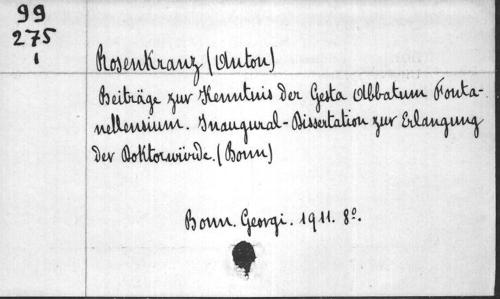 99
275
1
Rosenkranz (Anton)
Beiträge zur Kenntnis der Gesta Abbatum Fonta-
nellensium. Inaugural-Dissertation zur Erlangung
der Doktorwürde. (Bonn)
Bonn. Georgi. 1911. 8º.